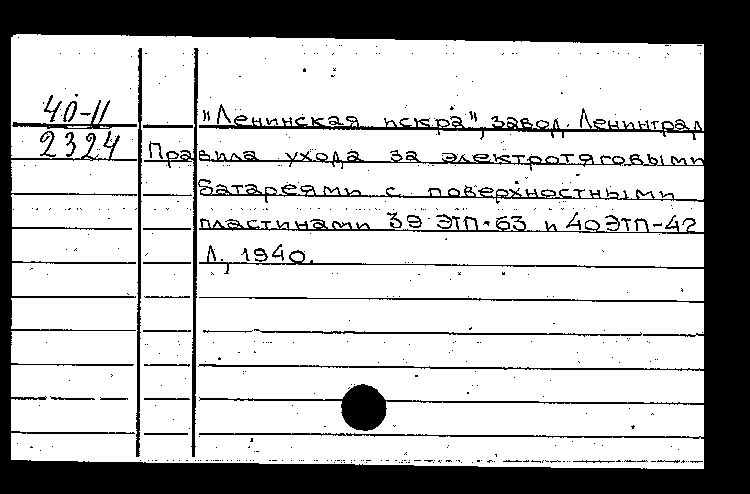 40-11
2324
"Ленинская искра", завод. Ленинград
Правила ухода за электротяговыми
батареями с поверхностными
пластинами 39 ЭТП-63 и 40ЭТП-42
Л., 1940.